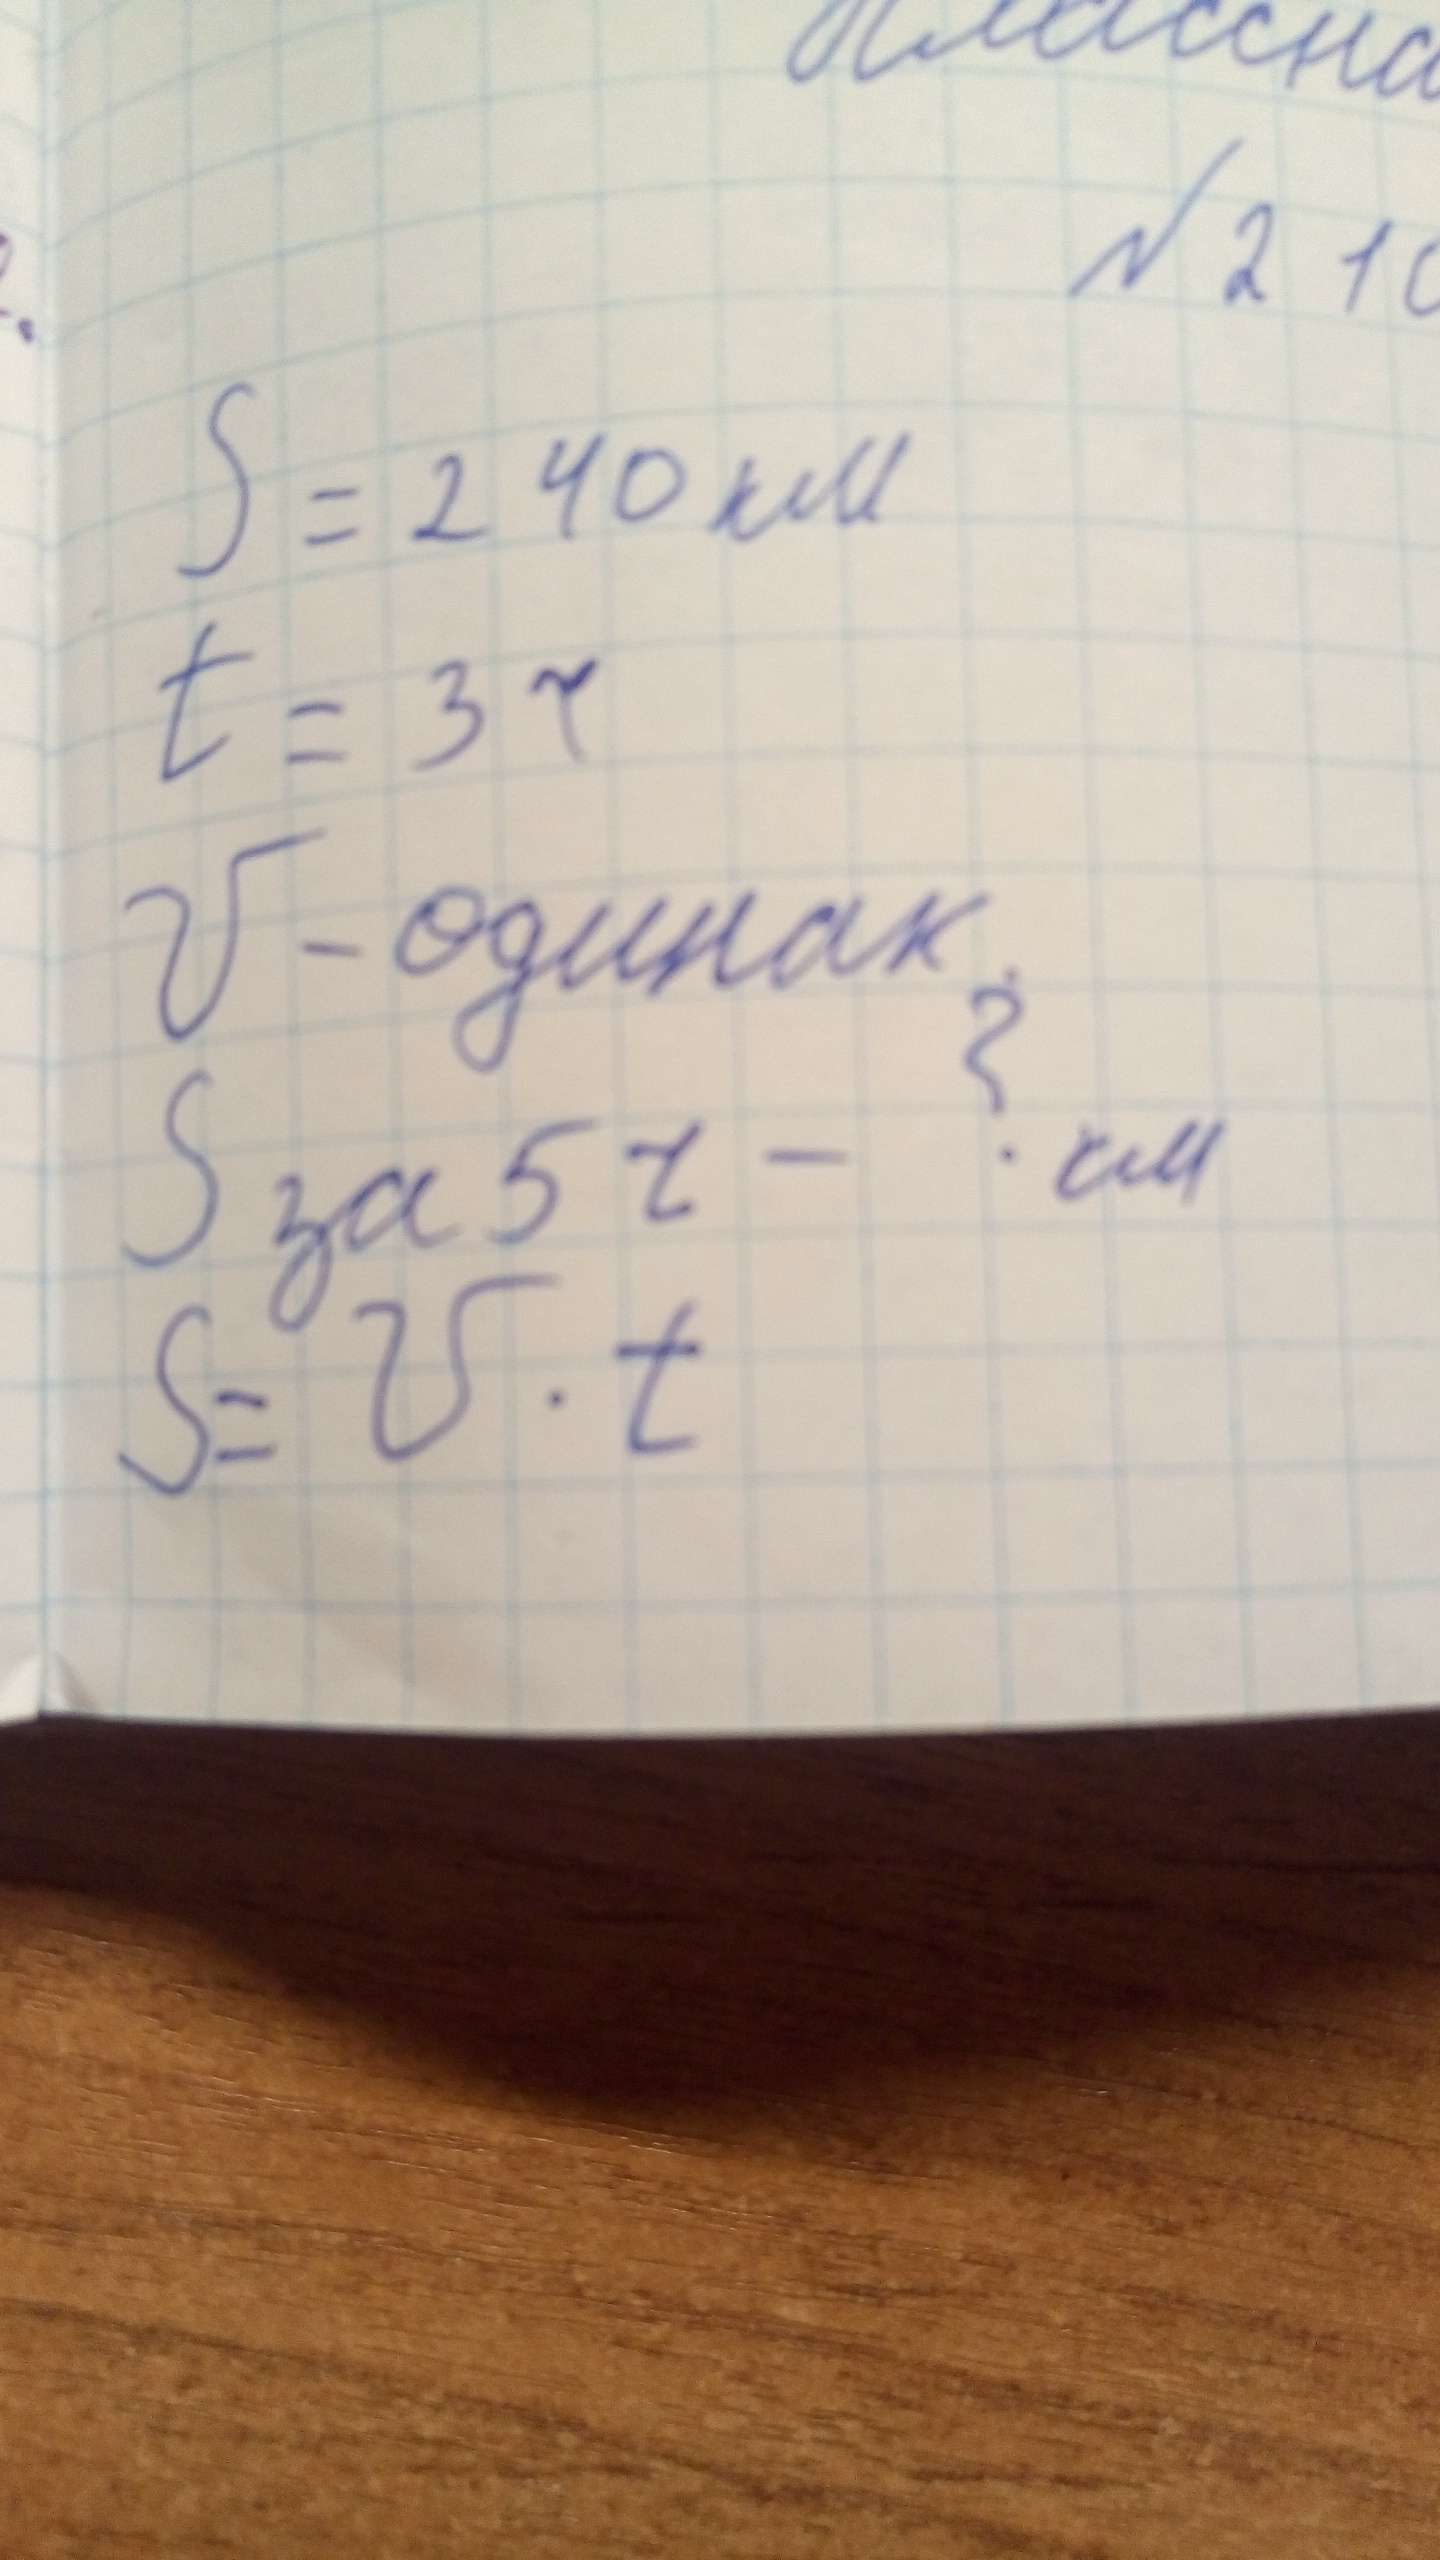 № 2 10
S = 240 км
t = 3 ч
V - одинак.
S за 5 ч - ? км
S = V · t